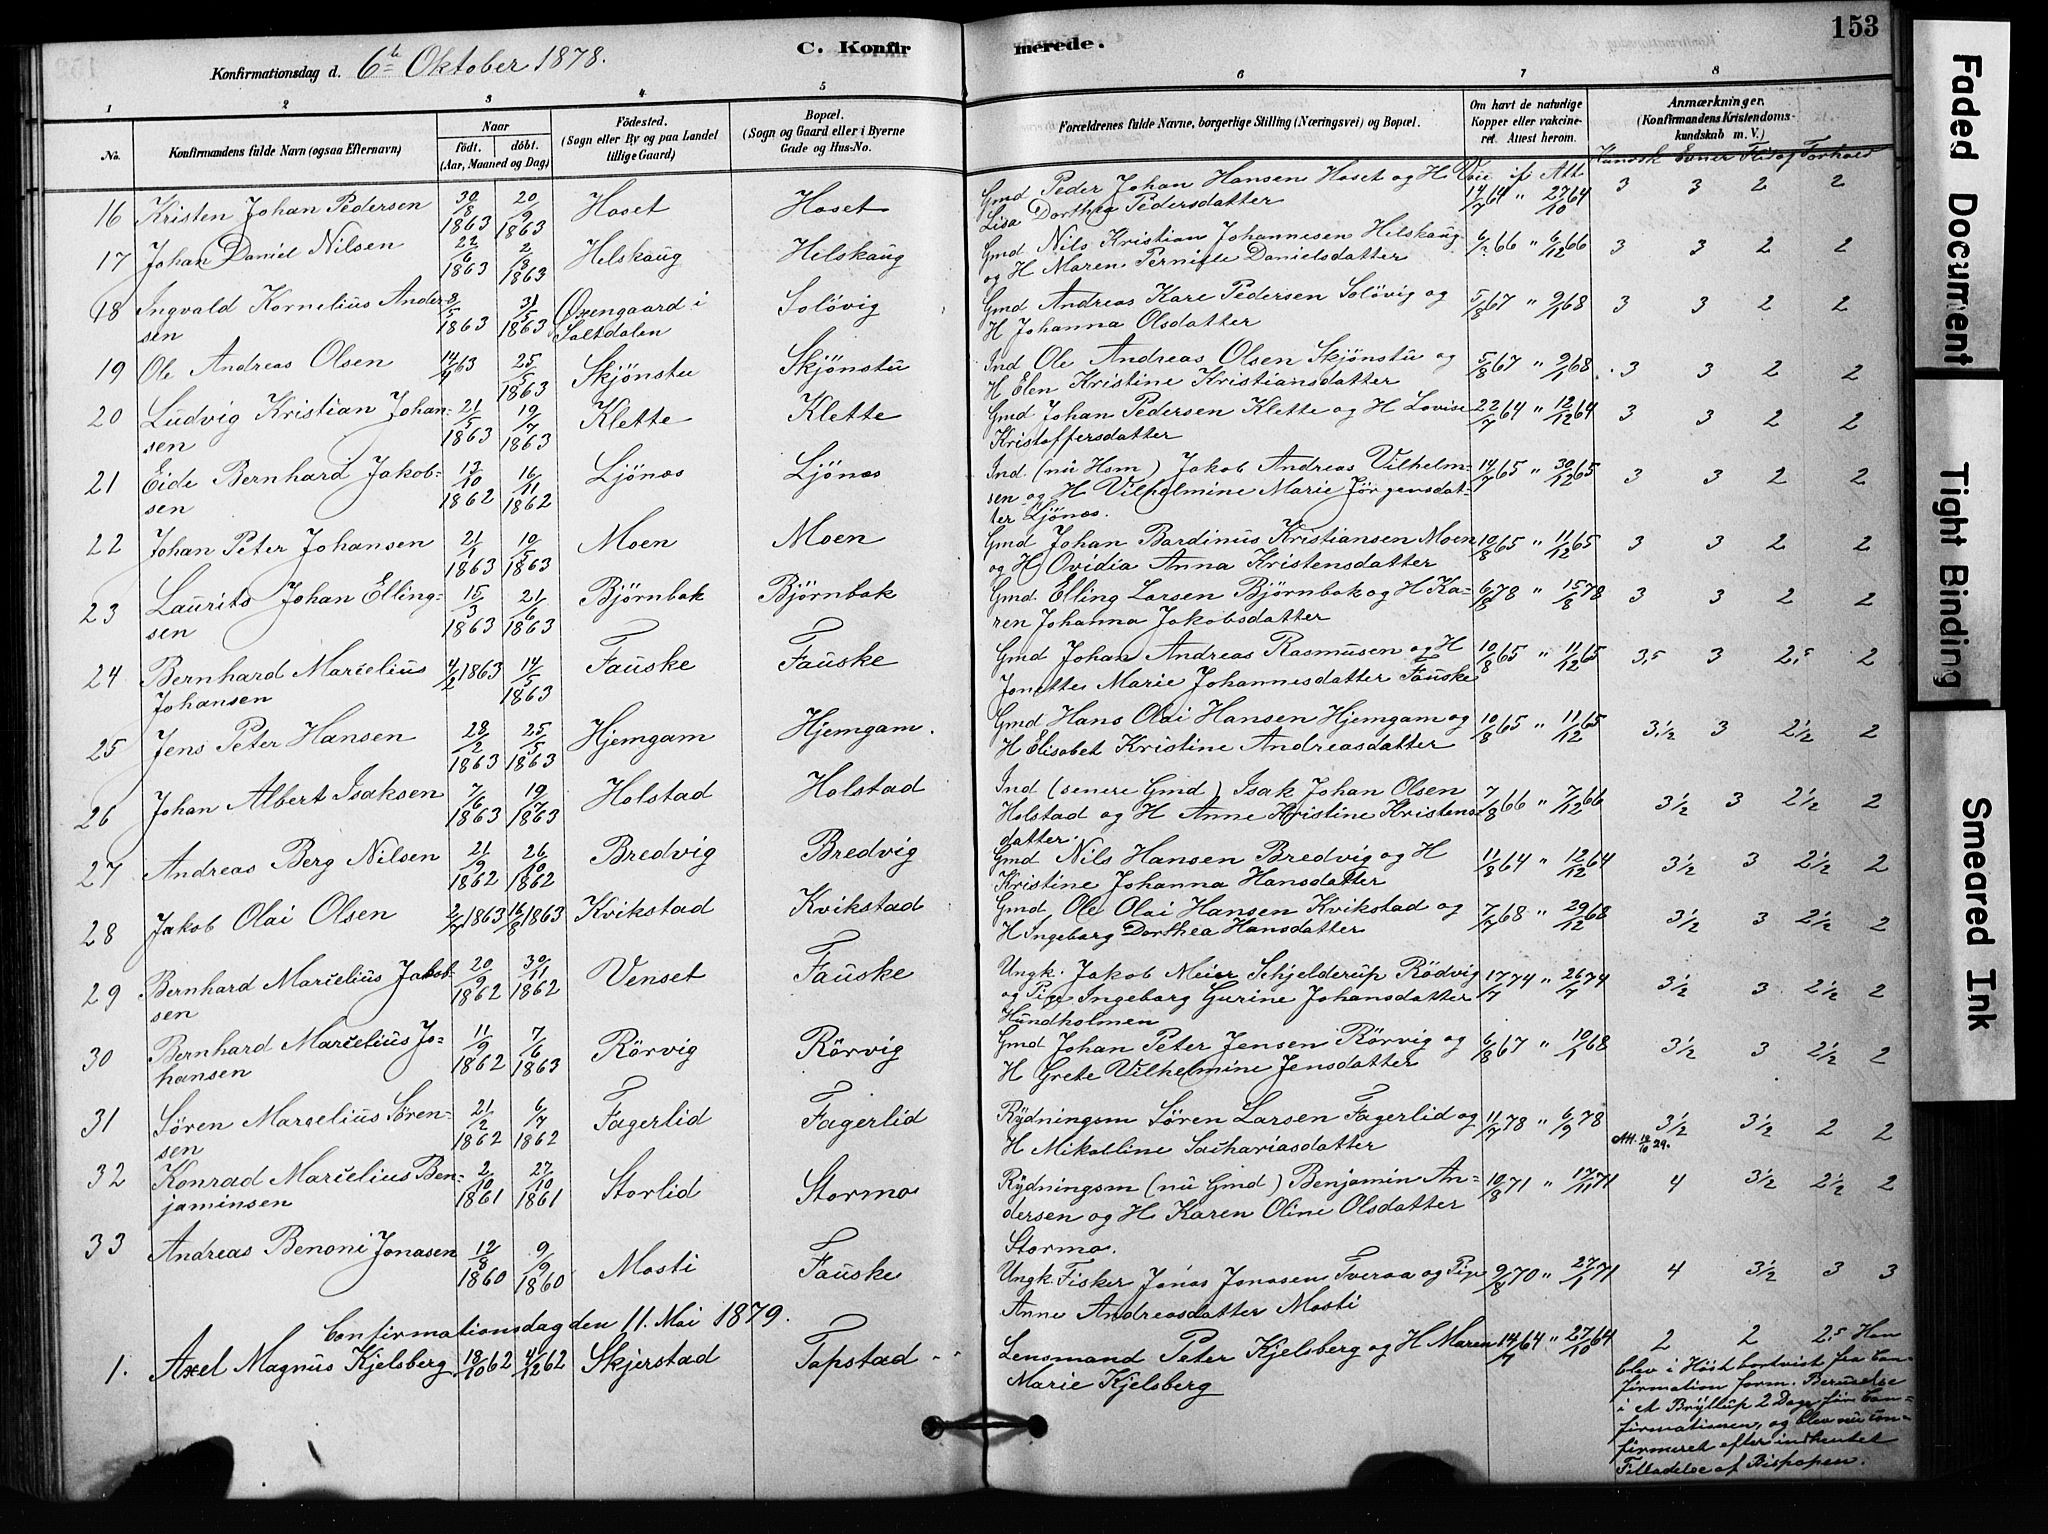 Konfirmationsdag d. 6te Oktober 1878.
C. Konfirmerede.
153
1 2 3 4 5 6 7 8
No.
Konfirmandens fulde Navn (ogsaa Efternavn)
Naar
født. døbt.
(Aar, Maaned og Dag)
Fødested.
(Sogn eller By og paa Landet
tillige Gaard)
Bopæl.
(Sogn og Gaard eller i Byerne
Gade og Hus-No.
Forældrenes fulde Navne, borgerlige Stilling (Næringsvei) og Bopæl.
Om havt de naturlige
Kopper eller vakcine-
ret. Attest herom.
Anmærkninger.
(Konfirmandens Kristendoms-
kundskab m. V.)
Kundsk Evner Flid og Forhold
16 Kristen Johan Pedersen 30/8 1863 20/9 1863 Hoset Hoset Gmd Peder Johan Hansen Hoset og H
Lisa Dorthea Pedersdatter 14/7 64 " 27/10 64 3 3 2 2
17 Johan Daniel Nilsen 22/6 1863 2/8 1863 Helskaug Helskaug Gmd. Nils Kristian Johannesen Helskaug
og H Maren Pernille Danielsdatter 66 " 6/12 66 3 3 2 2
18 Ingvald Kornelius Ander-
sen 1863 31/5 1863 Oxengaard i
Saltdalen Solövig Gmd Andreas Kare Pedersen Solövig og
H Johanna Olsdatter 5/8 67 " 9/1 68 3 3 2 2
19 Ole Andreas Olsen 14/4 63 25/5 1863 Skjönstu Skjönstu Ind Ole Andreas Olsen Skjönstu og
H Elen Kristine Kristiansdatter 5/8 67 " 9/1 68 3 3 2 2
20 Ludvig Kristian Johan-
sen 21/5 1863 19/7 1863 Klette Klette Gmd Johan Pedersen Klette og H Lovise
Kristoffersdatter 22/7 64 " 12/12 64 3 3 2 2
21 Eide Bernhard Jakob-
sen 13/10 1862 16/11 1862 Ljönes Ljönes Ind (nu Hsm) Jakob Andreas Vilhelm-
sen og H Vilhelmine Marie Jörgensdat-
ter Ljönes. 14/7 65 " 30/12 65 3 3 2 2
22 Johan Peter Johansen 21/1 1863 10/5 1863 Moen Moen Gmd Johan Bardinus Kristiansen Moen
og H Ovidia Anna Kristensdatter 10/8 65 " 11/12 65 3 3 2 2
23 Laurits Johan Elling-
sen 15/3 1863 21/6 1863 Björnbak Björnbak Gmd. Elling Larsen Björnbak og H Ka-
ren Johanna Jakobsdatter 6/8 78 " 15/8 78 3 3 2 2
24 Bernhard Marcelius
Johansen 4/2 1863 14/5 1863 Fauske Fauske Gmd Johan Andreas Rasmusen og H
Jonette Marie Johannesdatter Fauske 10/8 65 " 11/12 65 3,5 3 2,5 2
25 Jens Peter Hansen 28/2 1863 25/5 1863 Hjemgam Hjemgam. Gmd Hans Olai Hansen Hjemgam og
H Elisabet Kristine Andreasdatter 10/8 65 " 11/12 65 3,1/2 3 2 1/2 2
26 Johan Albert Isaksen 7/6 1863 19/7 1863 Holstad Holstad Ind (senere Gmd) Isak Johan Olsen
Holstad og H Anne Kristine Kristens-
datter. 7/8 66 " 7/12 66 3 1/2 3 2 1/2 2
27 Andreas Berg Nilsen 21/9 1862 26/10 1862 Bredvig Bredvig Gmd Nils Hansen Bredvig og H
Kristine Johanna Hansdatter 11/8 64 " 12/12 64 3 1/2 3 2 1/2 2
28 Jakob Olai Olsen 2/7 1863 16/8 1863 Kvikstad Kvikstad Gmd Ole Olai Hansen Kvikstad og
H Ingeborg Dorthea Hansdatter 7/7 68 " 29/12 68 3 1/2 3 2 1/2 2
29 Bernhard Marcelius Jakob-
sen 20/9 1862 30/11 1862 Venset Fauske Ungk. Jakob Meier Schjelderup Rödvig
og Pige Ingeborg Gurine Johansdatter
Hundholmen 17/7 74 " 26/7 74 3 1/2 3 2 1/2 2
30 Bernhard Marcelius Jo-
hansen 11/9 1862 7/6 1863 Rörvig Rörvig Gmd Johan Peter Jensen Rörvig og
H Grete Vilhelmine Jensdatter 6/8 67 " 10/1 68 3 1/2 3 2 1/2 2
31 Sören Marcelius Sören-
sen 21/2 1862 6/7 1862 Fagerlid Fagerlid Rydningsm Sören Larsen Fagerlid og
H Mikalline Sachariasdatter 11/7 78 " 6/9 78 3 1/2 3 1/2 2 2
Att. 29.
32 Konrad Marcelius Ben-
jaminsen 2/10 1861 27/10 1861 Storlid Stormo Rydningsm (nu Gmd) Benjamin An-
dersen og H Karen Oline Olsdatter
Stormo. 10/8 71 " 17/11 71 4 3 1/2 2 1/2 2
33 Andreas Benoni Jonasen 12/8 1860 9/9 1860 Mosti Fauske Ungk Fisker Jonas Jonasen Tveraa og Pige
Anne Andreasdatter Mosti 9/8 70 " 27/1 71 4 3 1/2 3 3
Confirmationsdag den 11. Mai 1879.
1. Axel Magnus Kjelsberg 18/10 62 4/12 62 Skjerstad Topstad Lensmand Peter Kjelsberg og H Maren
Marie Kjelsberg 14/7 64 " 27/10 64 2 2 2,5 Han
blev i Höst bortvist fra Con-
firmation form. Beruselse
i et Bryllup 2 Dage för Con-
firmationen, og blev nu con-
firmeret efter indhentet
Tilladelse af Biskopen.
Faded Document
Tight Binding
Smeared Ink